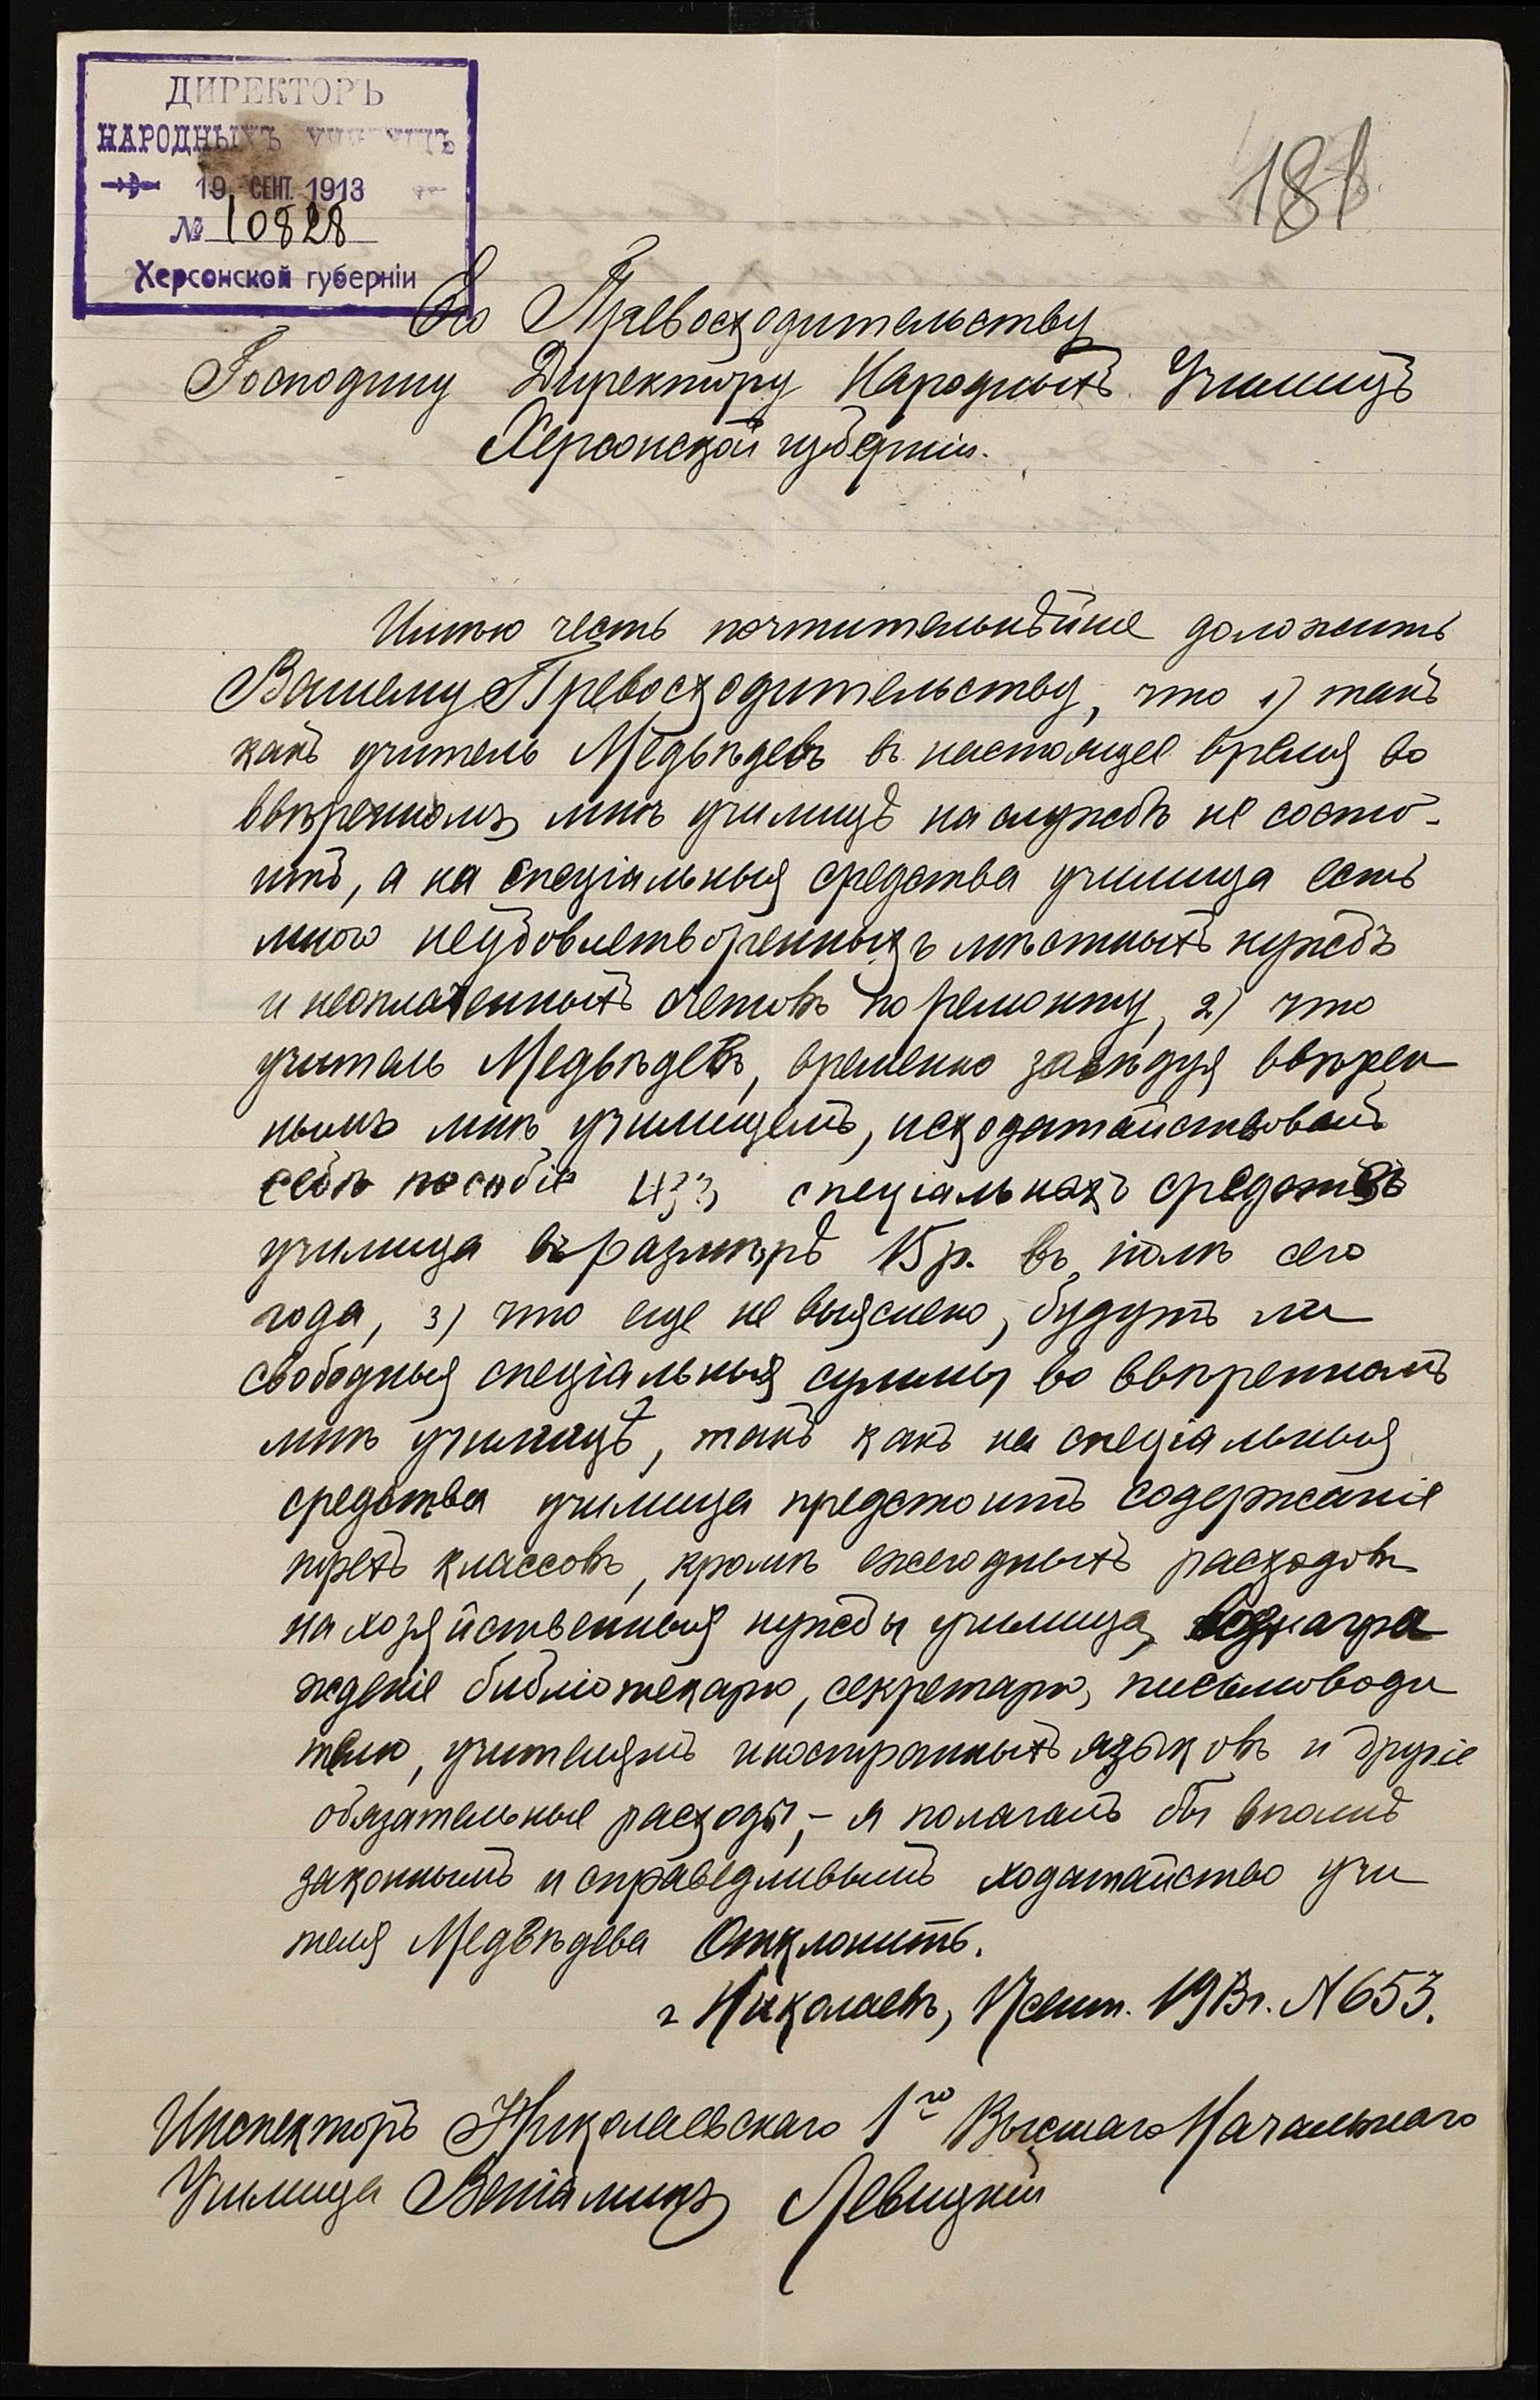 ДИРЕКТОРЪ
НАРОДНЫХЪ УЧИЛИЩЪ
19 СЕНТ. 1913
№ 10828
Херсонской губерніи
181
Его Превосходительству
Господину Директору Народныхъ Училищъ
Херсонской губерніи.
Имѣю честь почтительнѣйше доложить
Вашему Превосходительству, что 1) такъ
какъ учитель Медвѣдевъ въ настоящее время во
ввѣренномъ мнѣ училищѣ на службѣ не состо-
итъ, а на спеціальныя средства училища есть
много неудовлетворенныхъ мѣстныхъ нуждъ
и неоплаченныхъ счетовъ по ремонту, 2) что
учитель Медвѣдевъ, временно завѣдуя ввѣрен
нымъ мнѣ училищемъ, исходатайствовалъ
себѣ пособіе изъ спеціальныхъ средствъ
училища въ размѣрѣ 15 р. въ іюлѣ сего
года, 3) что еще не выяснено, будутъ ли
свободныя спеціальныя суммы во ввѣренномъ
мнѣ училищѣ, такъ какъ на спеціальныя
средства училища предстоитъ содержаніе
трехъ классовъ, кромѣ ежегодныхъ расходовъ
на хозяйственныя нужды училища, вознагра
жденіе библіотекарю, секретарю, письмоводи
телю, учителямъ иностранныхъ языковъ и другіе
обязательные расходы, – я полагалъ бы вполнѣ
законнымъ и справедливымъ ходатайство учи
теля Медвѣдева отклонить.
г. Николаевъ, 17 сент. 1913 г. № 653.
Инспекторъ Николаевскаго 1го Высшаго Начальнаго
Училища Веніаминъ Левицкій